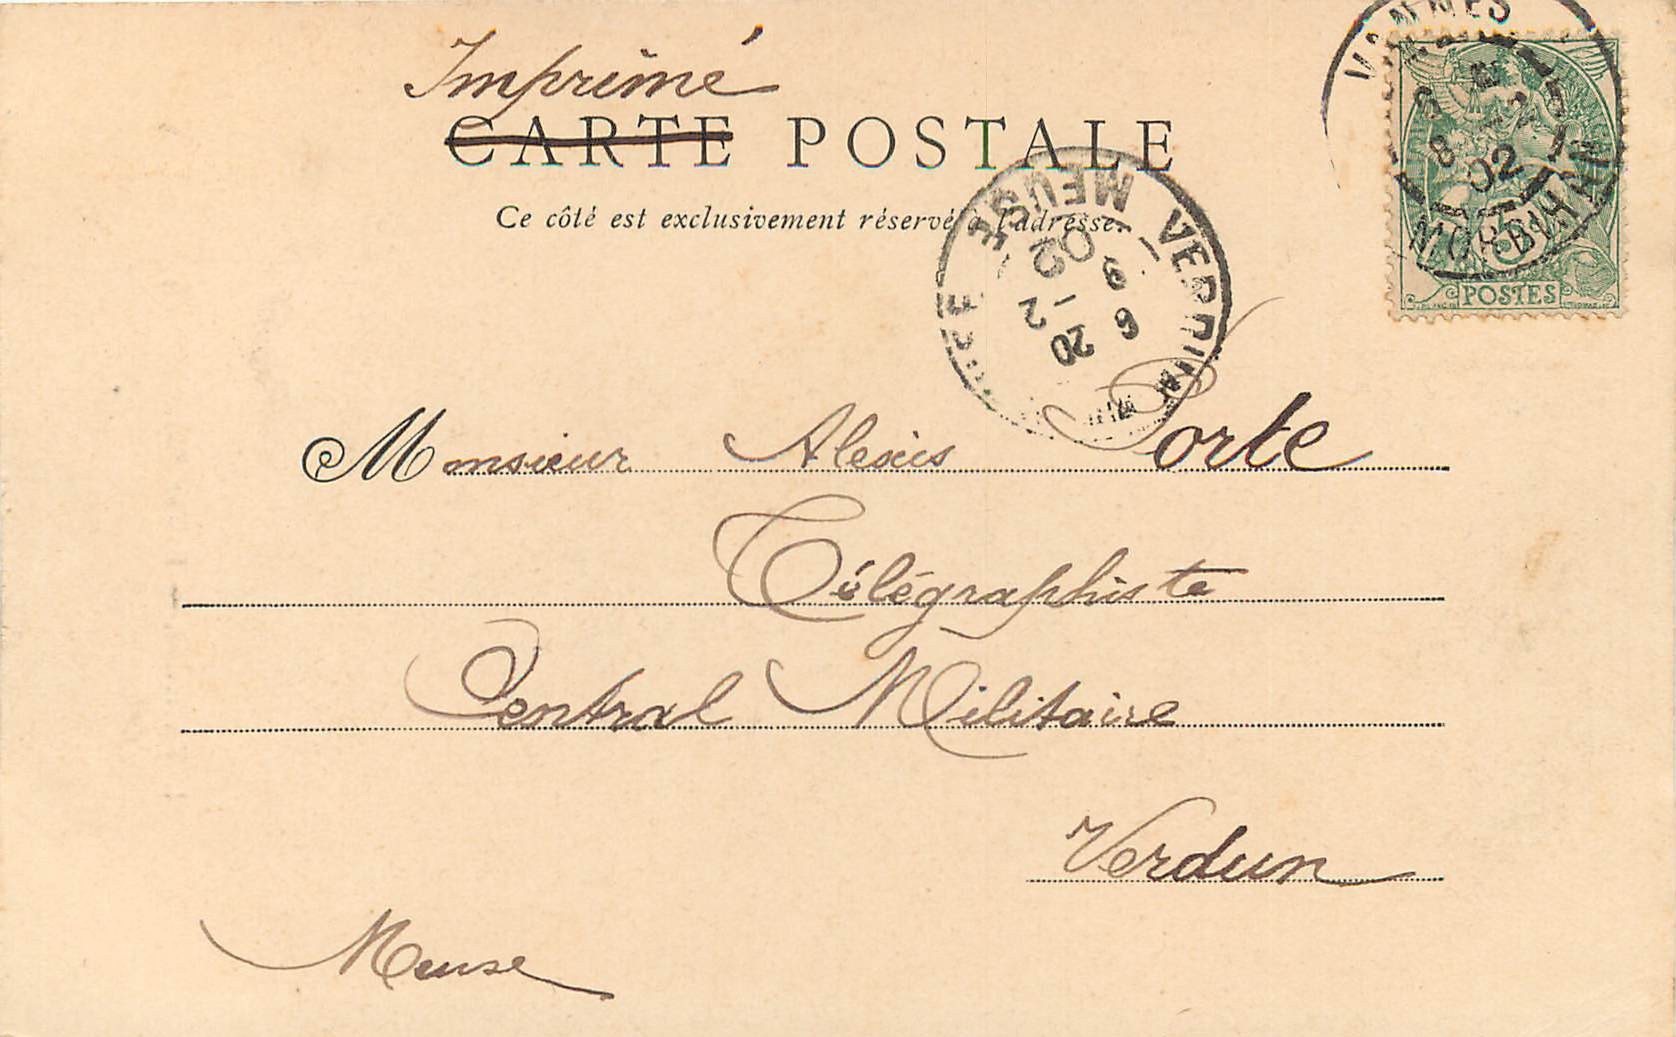 Imprimé
CARTE POSTALE
Ce côté est exclusivement réservé à l'adresse.
VANNES
8
02
MORBIHAN
POSTES
VERDUN
MEUSE
6
20 - 2
02
Monsieur Alexis Porte
Télégraphiste
Central Militaire
Verdun
Meuse